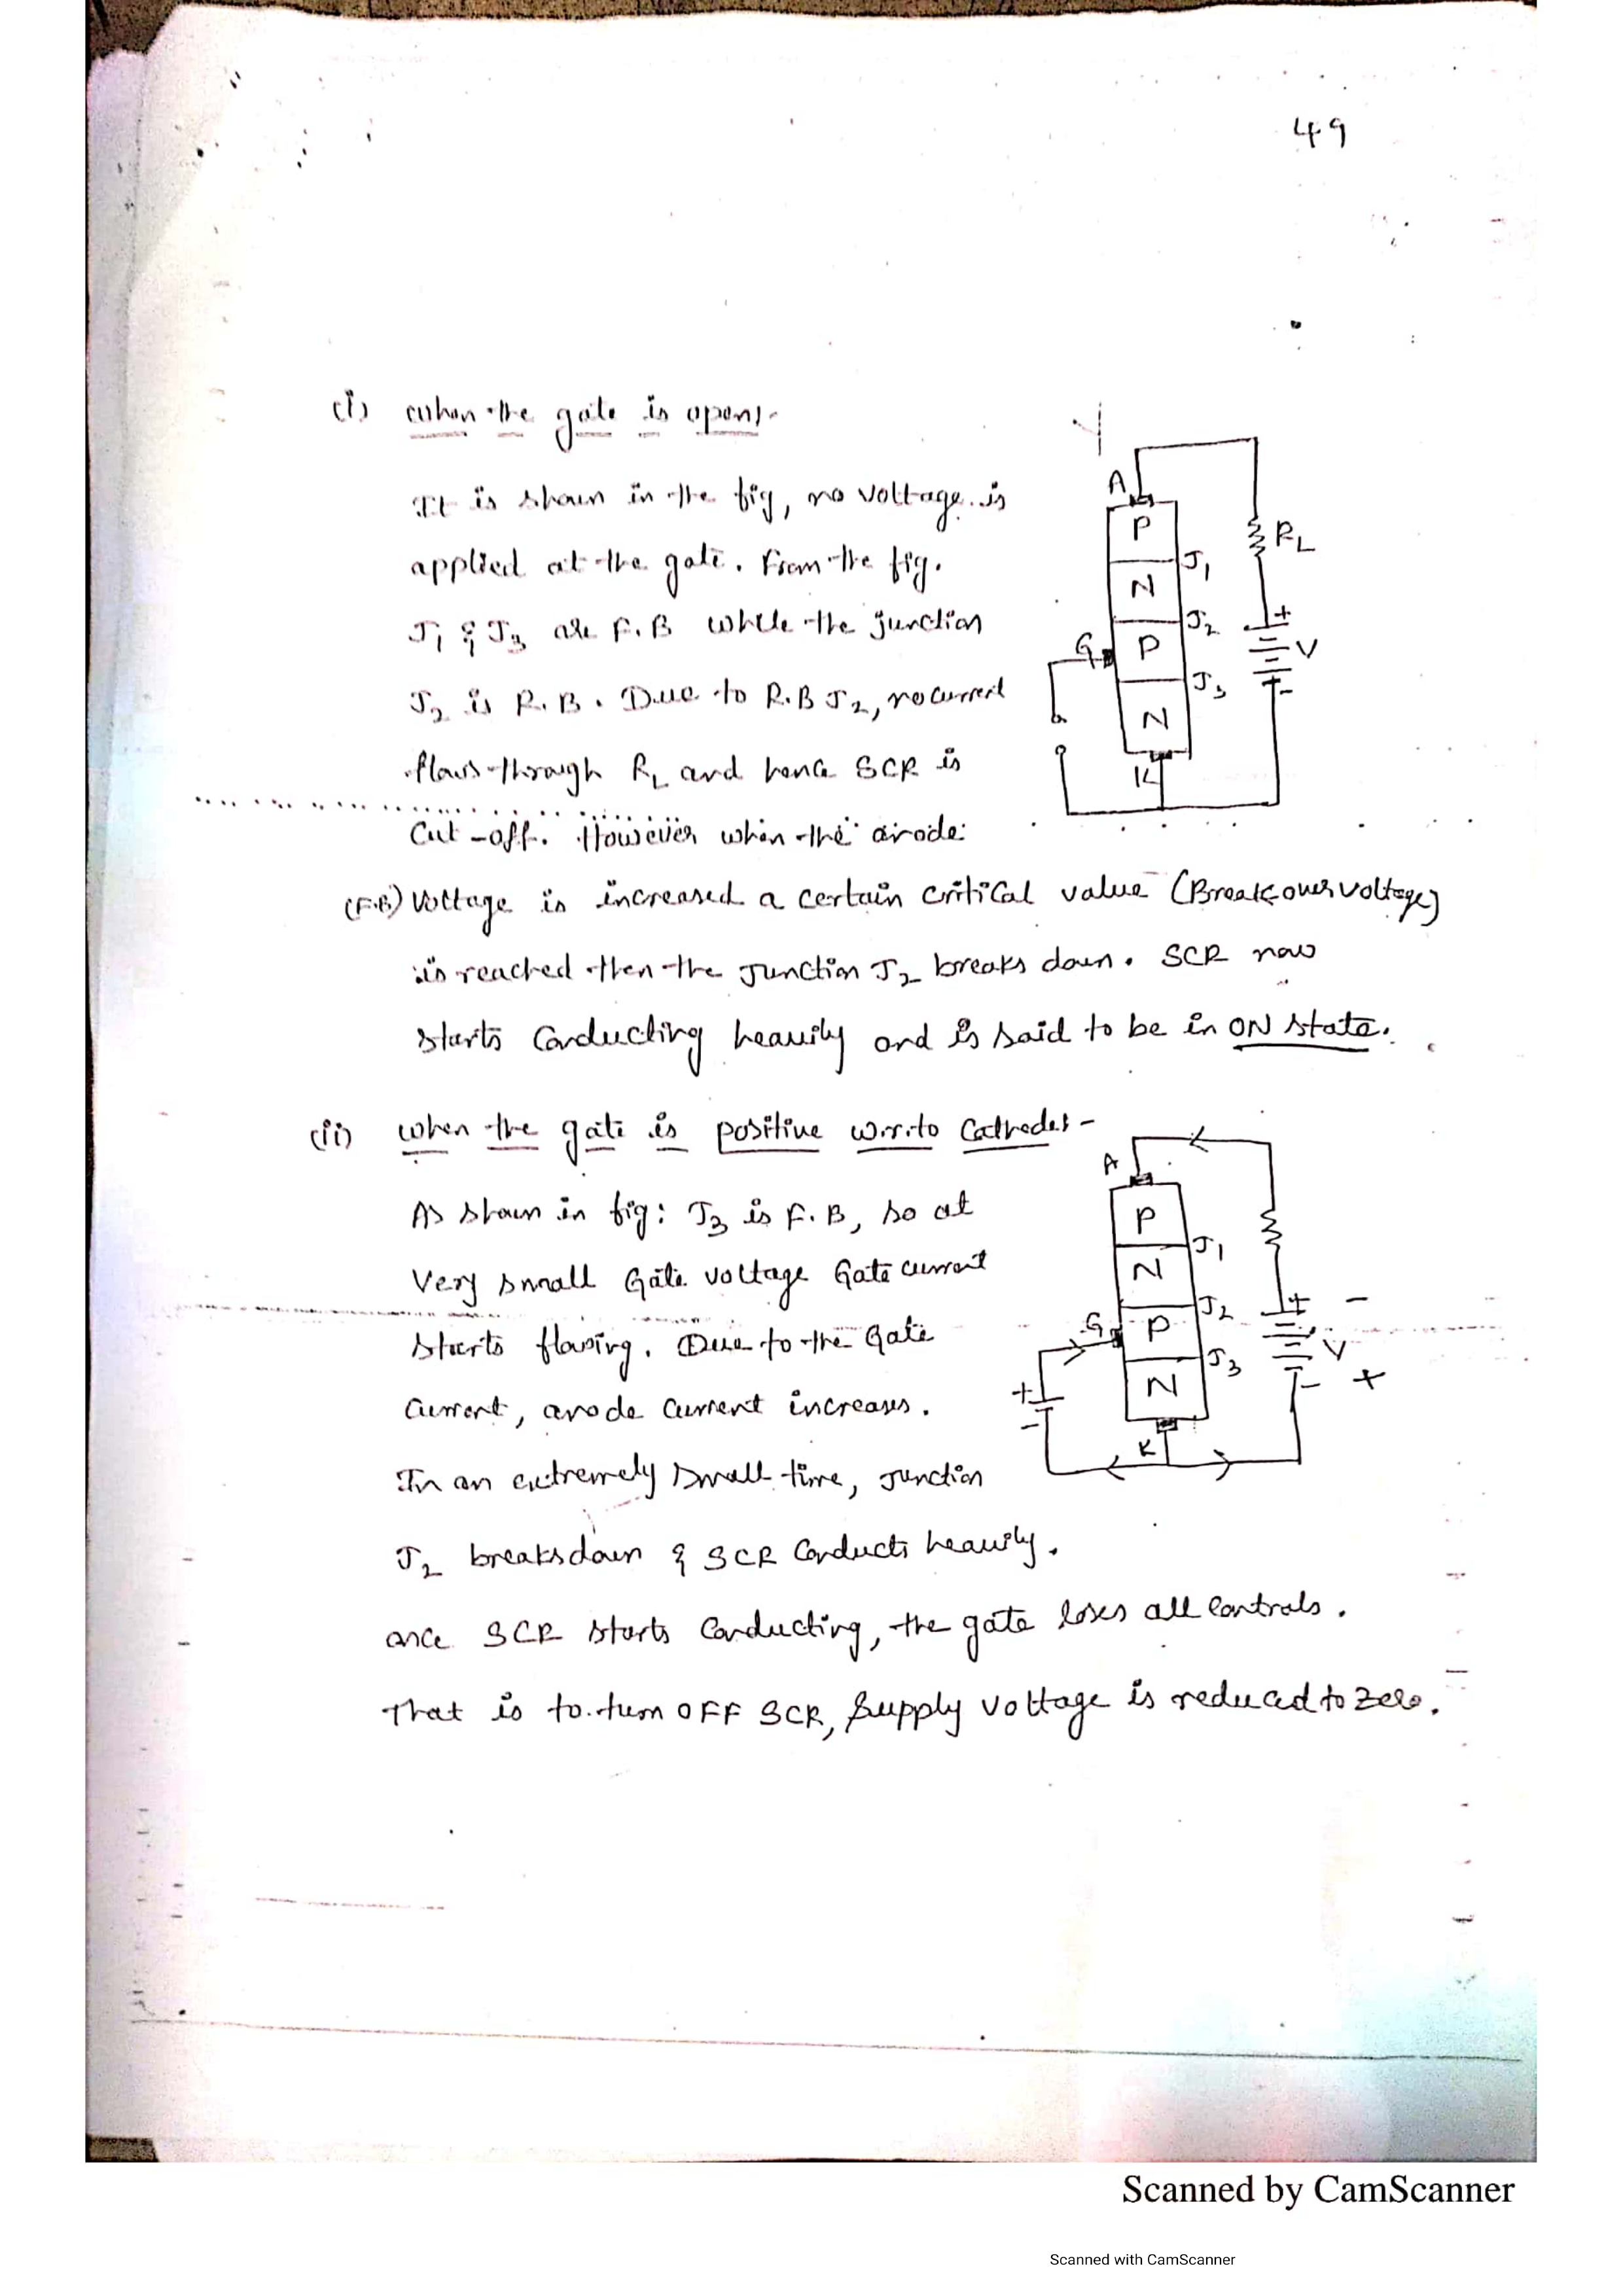 49
(i) when the gate is open:-
It is shown in the fig, no voltage is
applied at the gate. From the fig.
J1 & J3 are F.B while the junction
J2 is R.B. Due to R.B J2, no current
flows through RL and hence SCR is
Cut-off. However when the anode
(F.B) voltage is increased a certain critical value (Breakover voltage)
is reached then the junction J2 breaks down. SCR now
starts conducting heavily and is said to be in ON state.
A
P
J1
N
J2
G
P
J3
N
K
RL
+
V
-
(ii) when the gate is positive w.r.to Cathode:-
As shown in fig: J3 is F.B, so at
very small Gate voltage Gate current
starts flowing. Due to the Gate
current, anode current increases.
In an extremely small time, junction
J2 breaksdown & SCR conducts heavily.
once SCR starts conducting, the gate loses all controls.
That is to turn OFF SCR, supply voltage is reduced to zero.
A
P
J1
N
J2
G
P
J3
N
K
+
-
+ -
V
- +
Scanned by CamScanner
Scanned with CamScanner